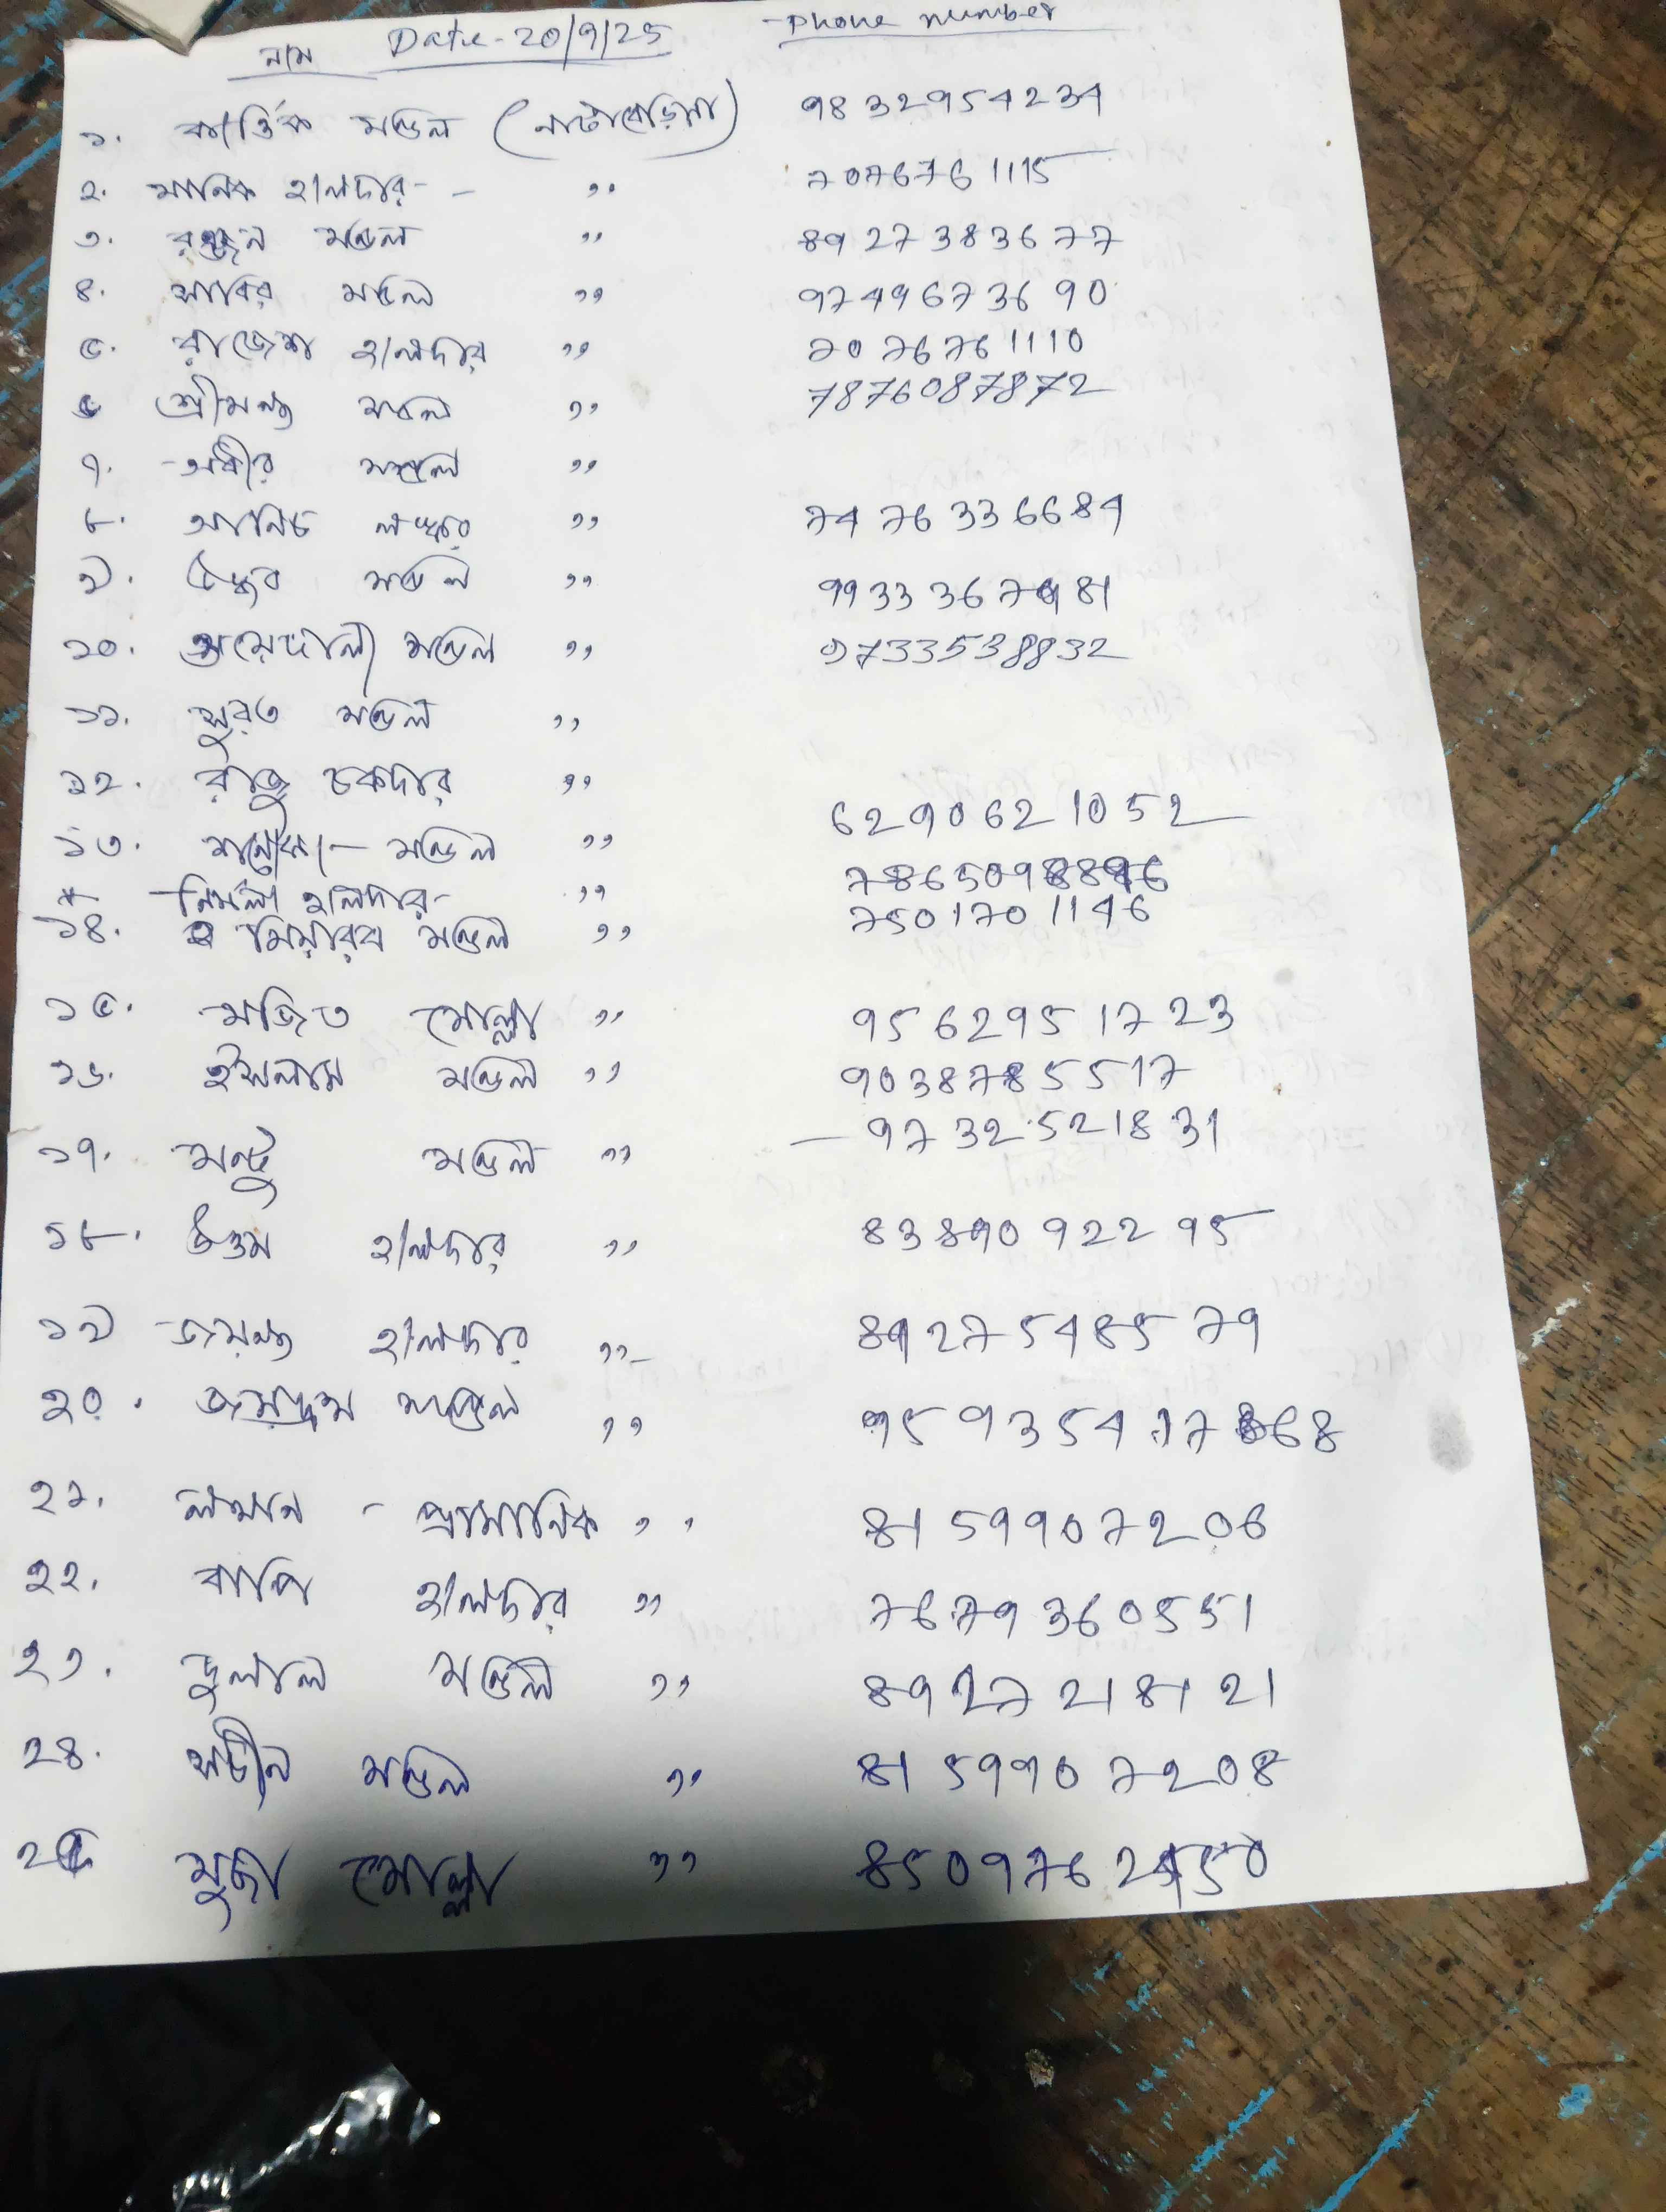 নাম Date-20/9/25 Phone number
১. কার্ত্তিক মণ্ডল (নাটাবেড়িয়া) 9832954234
২. মানিক হালদার - - ,, 7076761115
৩. রঞ্জন মন্ডল ,, 8927383677
৪. সাবির মন্ডল ,, 9749673690
৫. রাজেশ হালদার ,, 7076761110
শ্রীমন্ত মন্ডল ,, 7876087872
৭. অধীর মন্ডল ,,
৮. আনিচ লস্কর ,, 7476336684
৯. উদ্ধব মন্ডল ,, 9933367981
১০. মন্ডল ,, 9733538832
১১. সুরত মন্ডল ,,
১২. রাজু চকদার ,,
১৩. মন্ডল ,, 6290621052
* নির্মল হালদার - ,,
১৪. মন্ডল ,, 7501701146
১৫. মজিত মোল্লা ,, 9562951723
১৬. ইসলাম মন্ডল ,, 9038785517
১৭. মন্টু মন্ডল ,, - 9732521831
১৮. উত্তম হালদার ,, 8389092295
১৯ জয়ন্ত হালদার ,,- 8927548579
২০. মন্ডল ,,
২১. - প্রামানিক ,, 8159907206
২২. বাপি হালদার ,, 7679360551
২৩. দুলাল মন্ডল ,, 8927218121
২৪. সচীন মন্ডল ,, 8159907208
২৫ মুজা মোল্লা ,,